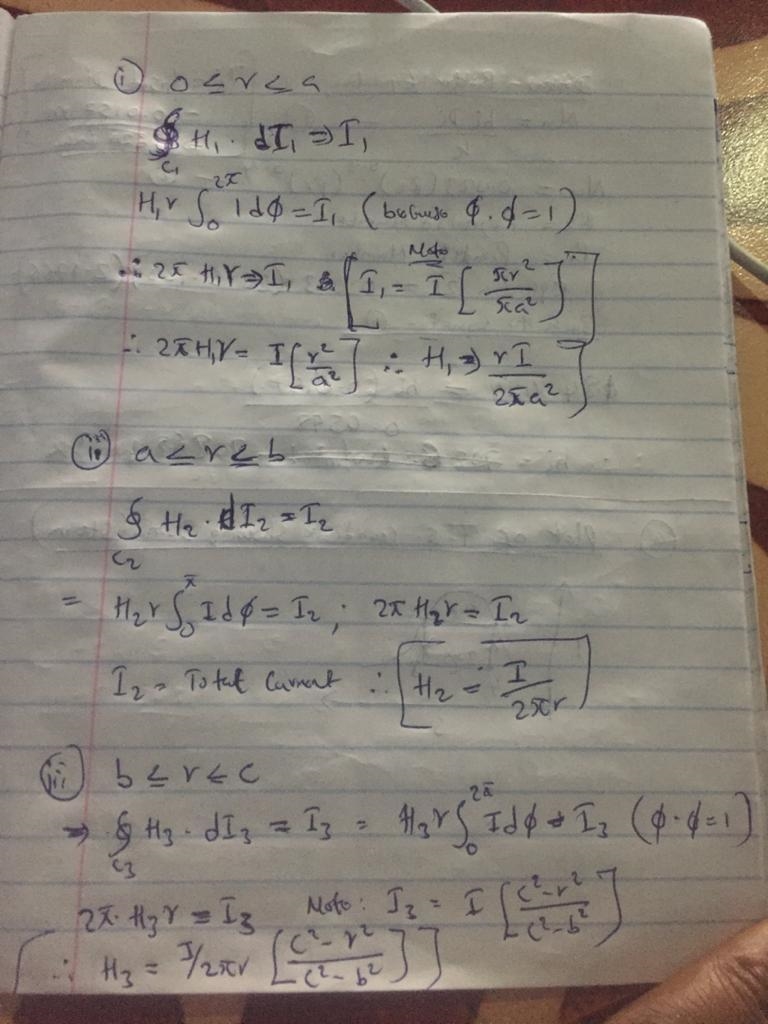 i) 0 ≤ r ≤ a
∮ H₁ · dI₁ ⇒ I₁
C₁
H₁r ∫₀^2π 1dφ = I₁ (because φ · φ = 1)
∴ 2π H₁r ⇒ I₁ [Note I₁ = I [πr²/πa²]
∴ 2πH₁r = I [r²/a²] ∴ H₁ ⇒ rI/2πa²]
ii) a ≤ r ≤ b
∮ H₂ · dI₂ = I₂
C₂
= H₂r ∫₀^π Idφ = I₂ ; 2π H₂r = I₂
I₂ = Total Current ∴ [H₂ = I/2πr]
iii) b ≤ r ≤ c
⇒ ∮ H₃ · dI₃ = I₃ = H₃r ∫₀^2π Idφ = I₃ (φ · φ = 1)
C₃
2π · H₃r = I₃ Note: I₃ = I [c²-r²/c²-b²]
[∴ H₃ = I/2πr [c²-r²/c²-b²]]